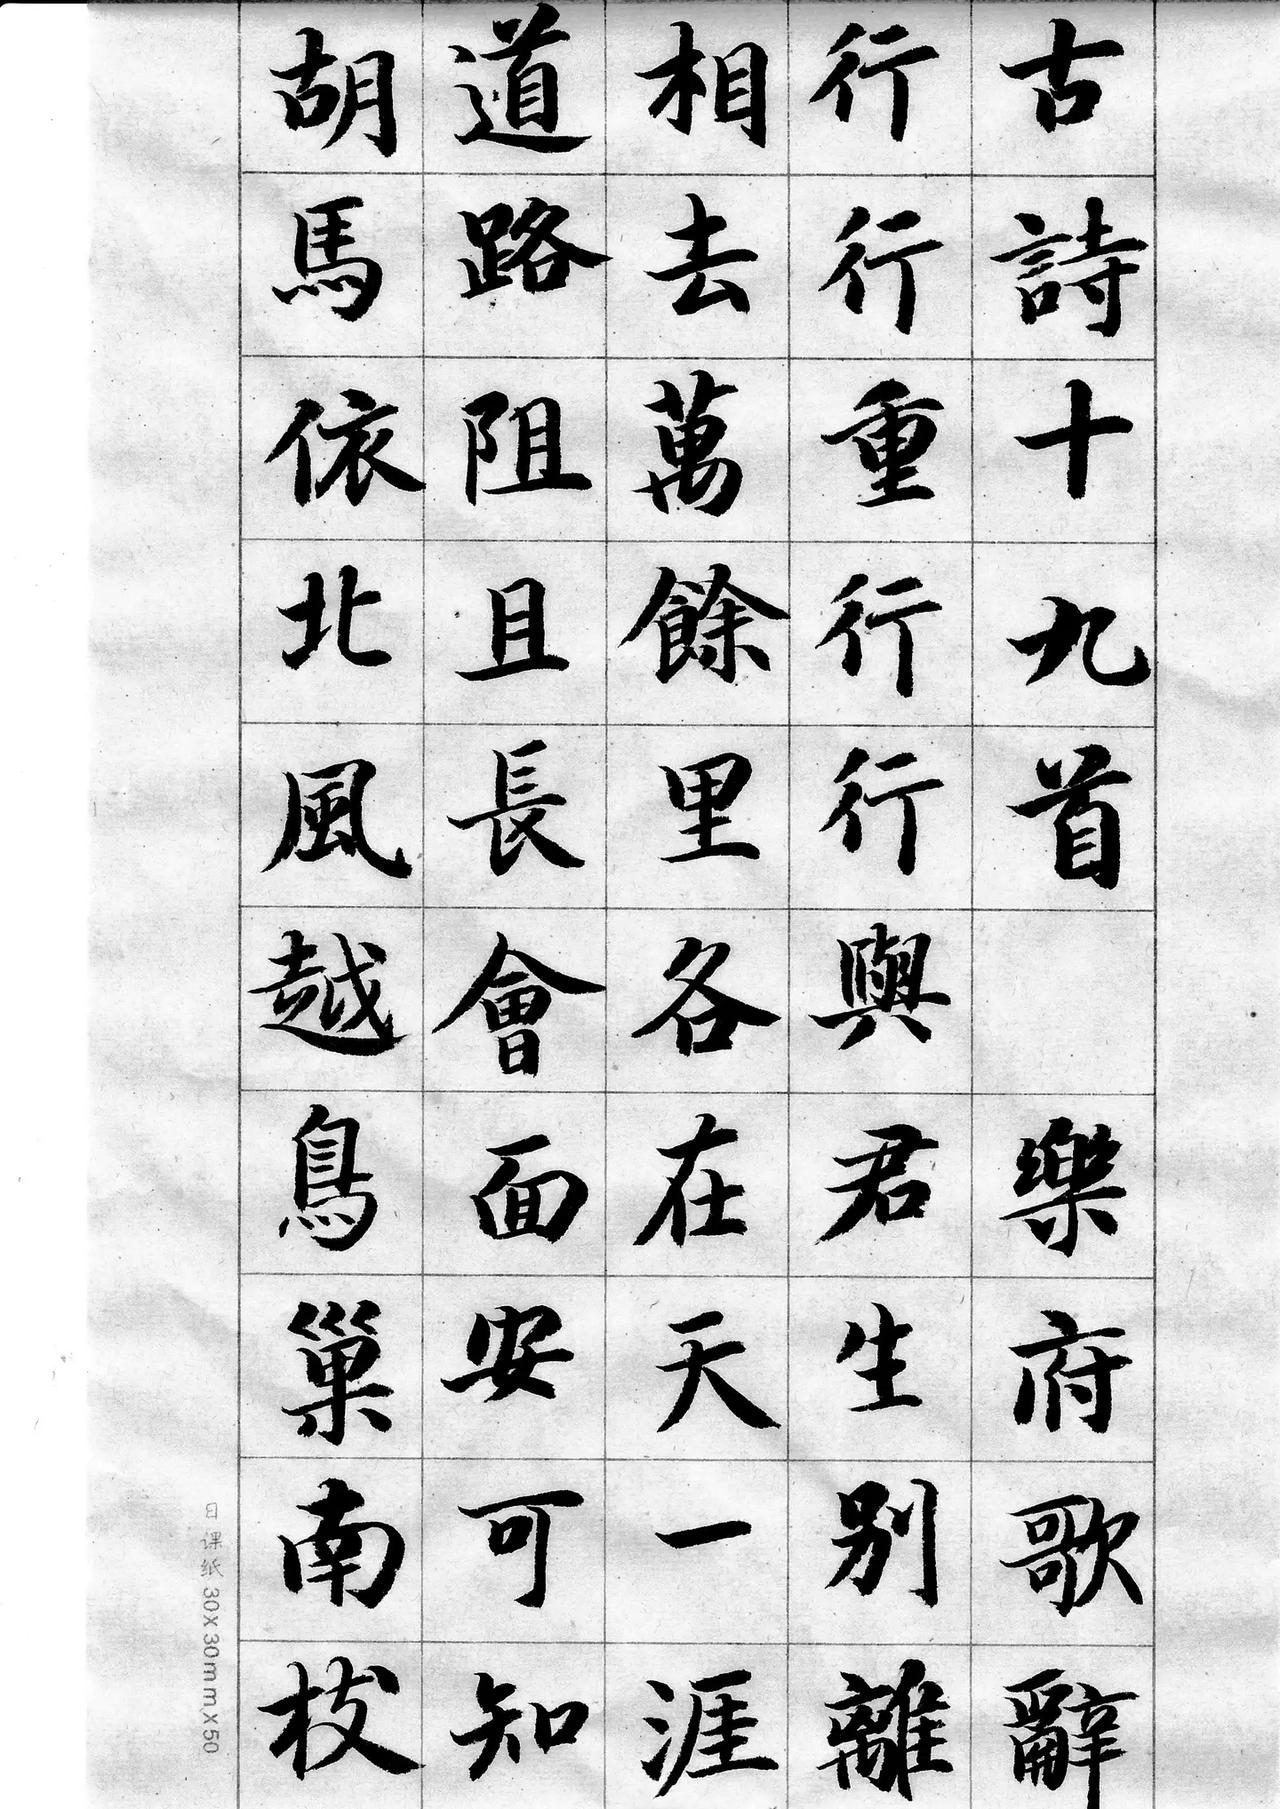 古詩十九首 樂府歌辭
行行重行行與君生別離
相去萬餘里各在天一涯
道路阻且長會面安可知
胡馬依北風越鳥巢南枝
日课纸 30×30mm×50